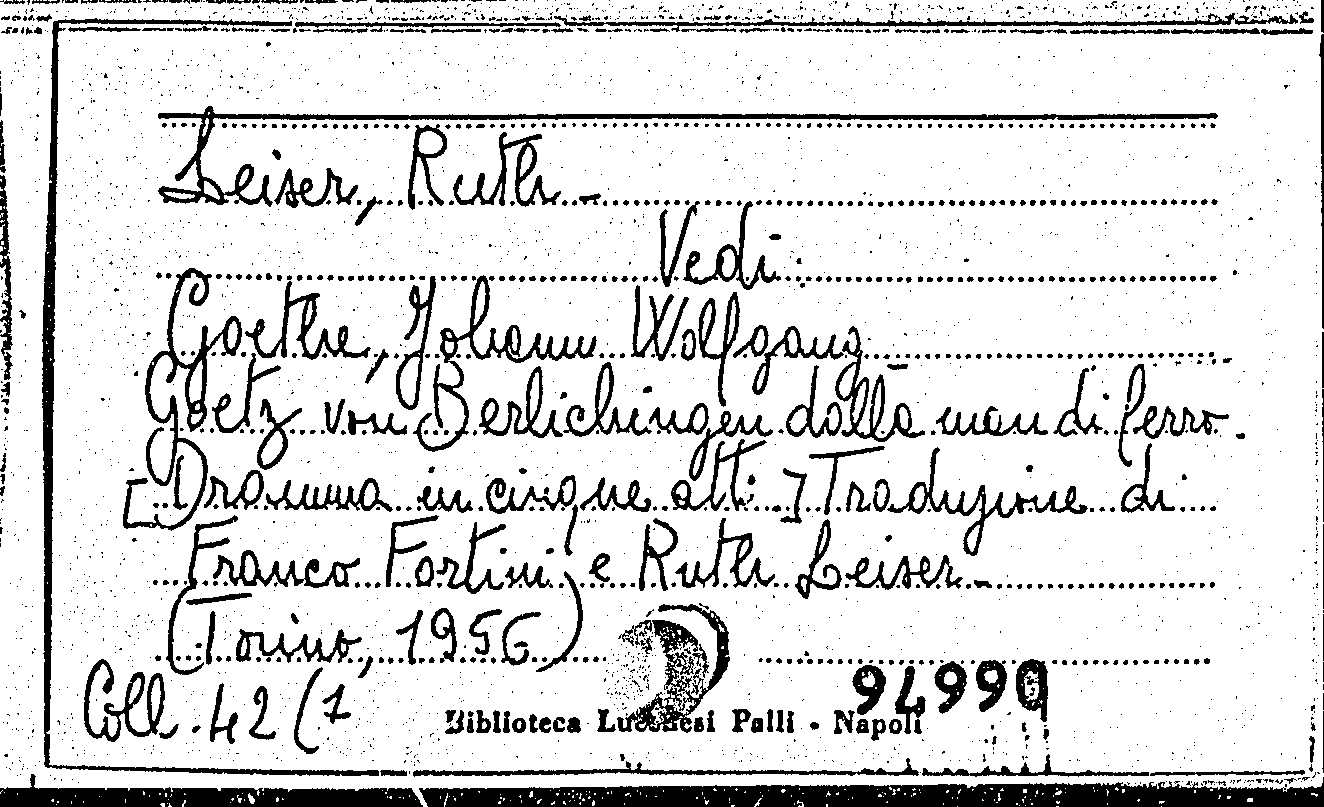 Leiser, Ruth -
Vedi:
Goethe, Johann Wolfgang -
Goetz von Berlichingen dalla man di ferro.
[Dramma in cinque atti.] Traduzione di
Franco Fortini e Ruth Leiser -
(Torino, 1956)
Coll. 42 (1
94990
Biblioteca Lucchesi Palli - Napoli